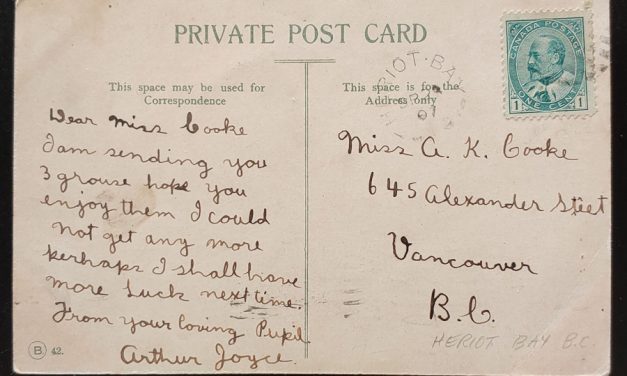 PRIVATE POST CARD
This space may be used for
Correspondence
Dear Miss Cooke
I am sending you
3 grouse hope you
enjoy them I could
not get any more
perhaps I shall have
more luck next time.
From your loving Pupil
Arthur Joyce.
B 42.
This space is for the
Address only
RIOT-BAY
07
CANADA POSTAGE
1 ONE CENT 1
Miss A. K. Cooke
645 Alexander Steet
Vancouver
B.C.
HERIOT BAY B.C.